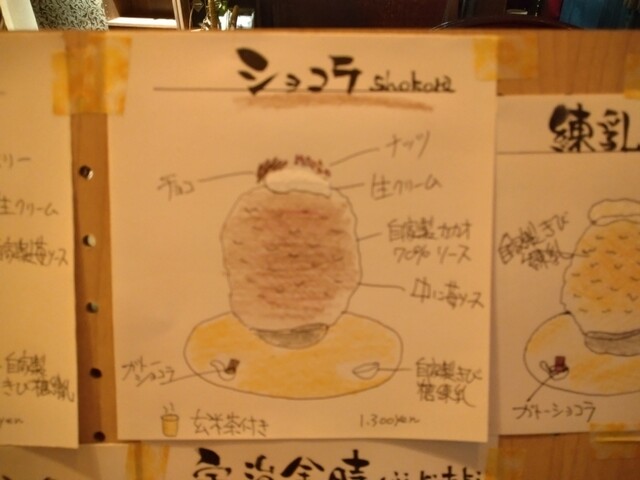 ショコラ shokora
ナッツ
チョコ
生クリーム
自家製カカオ
70% ソース
中に苺ソース
ガトー
ショコラ
自家製きび
糖練乳
玄米茶付き
1.300yen
生クリーム
自家製苺ソース
自家製
きび糖練乳
yen
練乳
自家製きび
糖練乳
ガトーショコラ
宇治金時